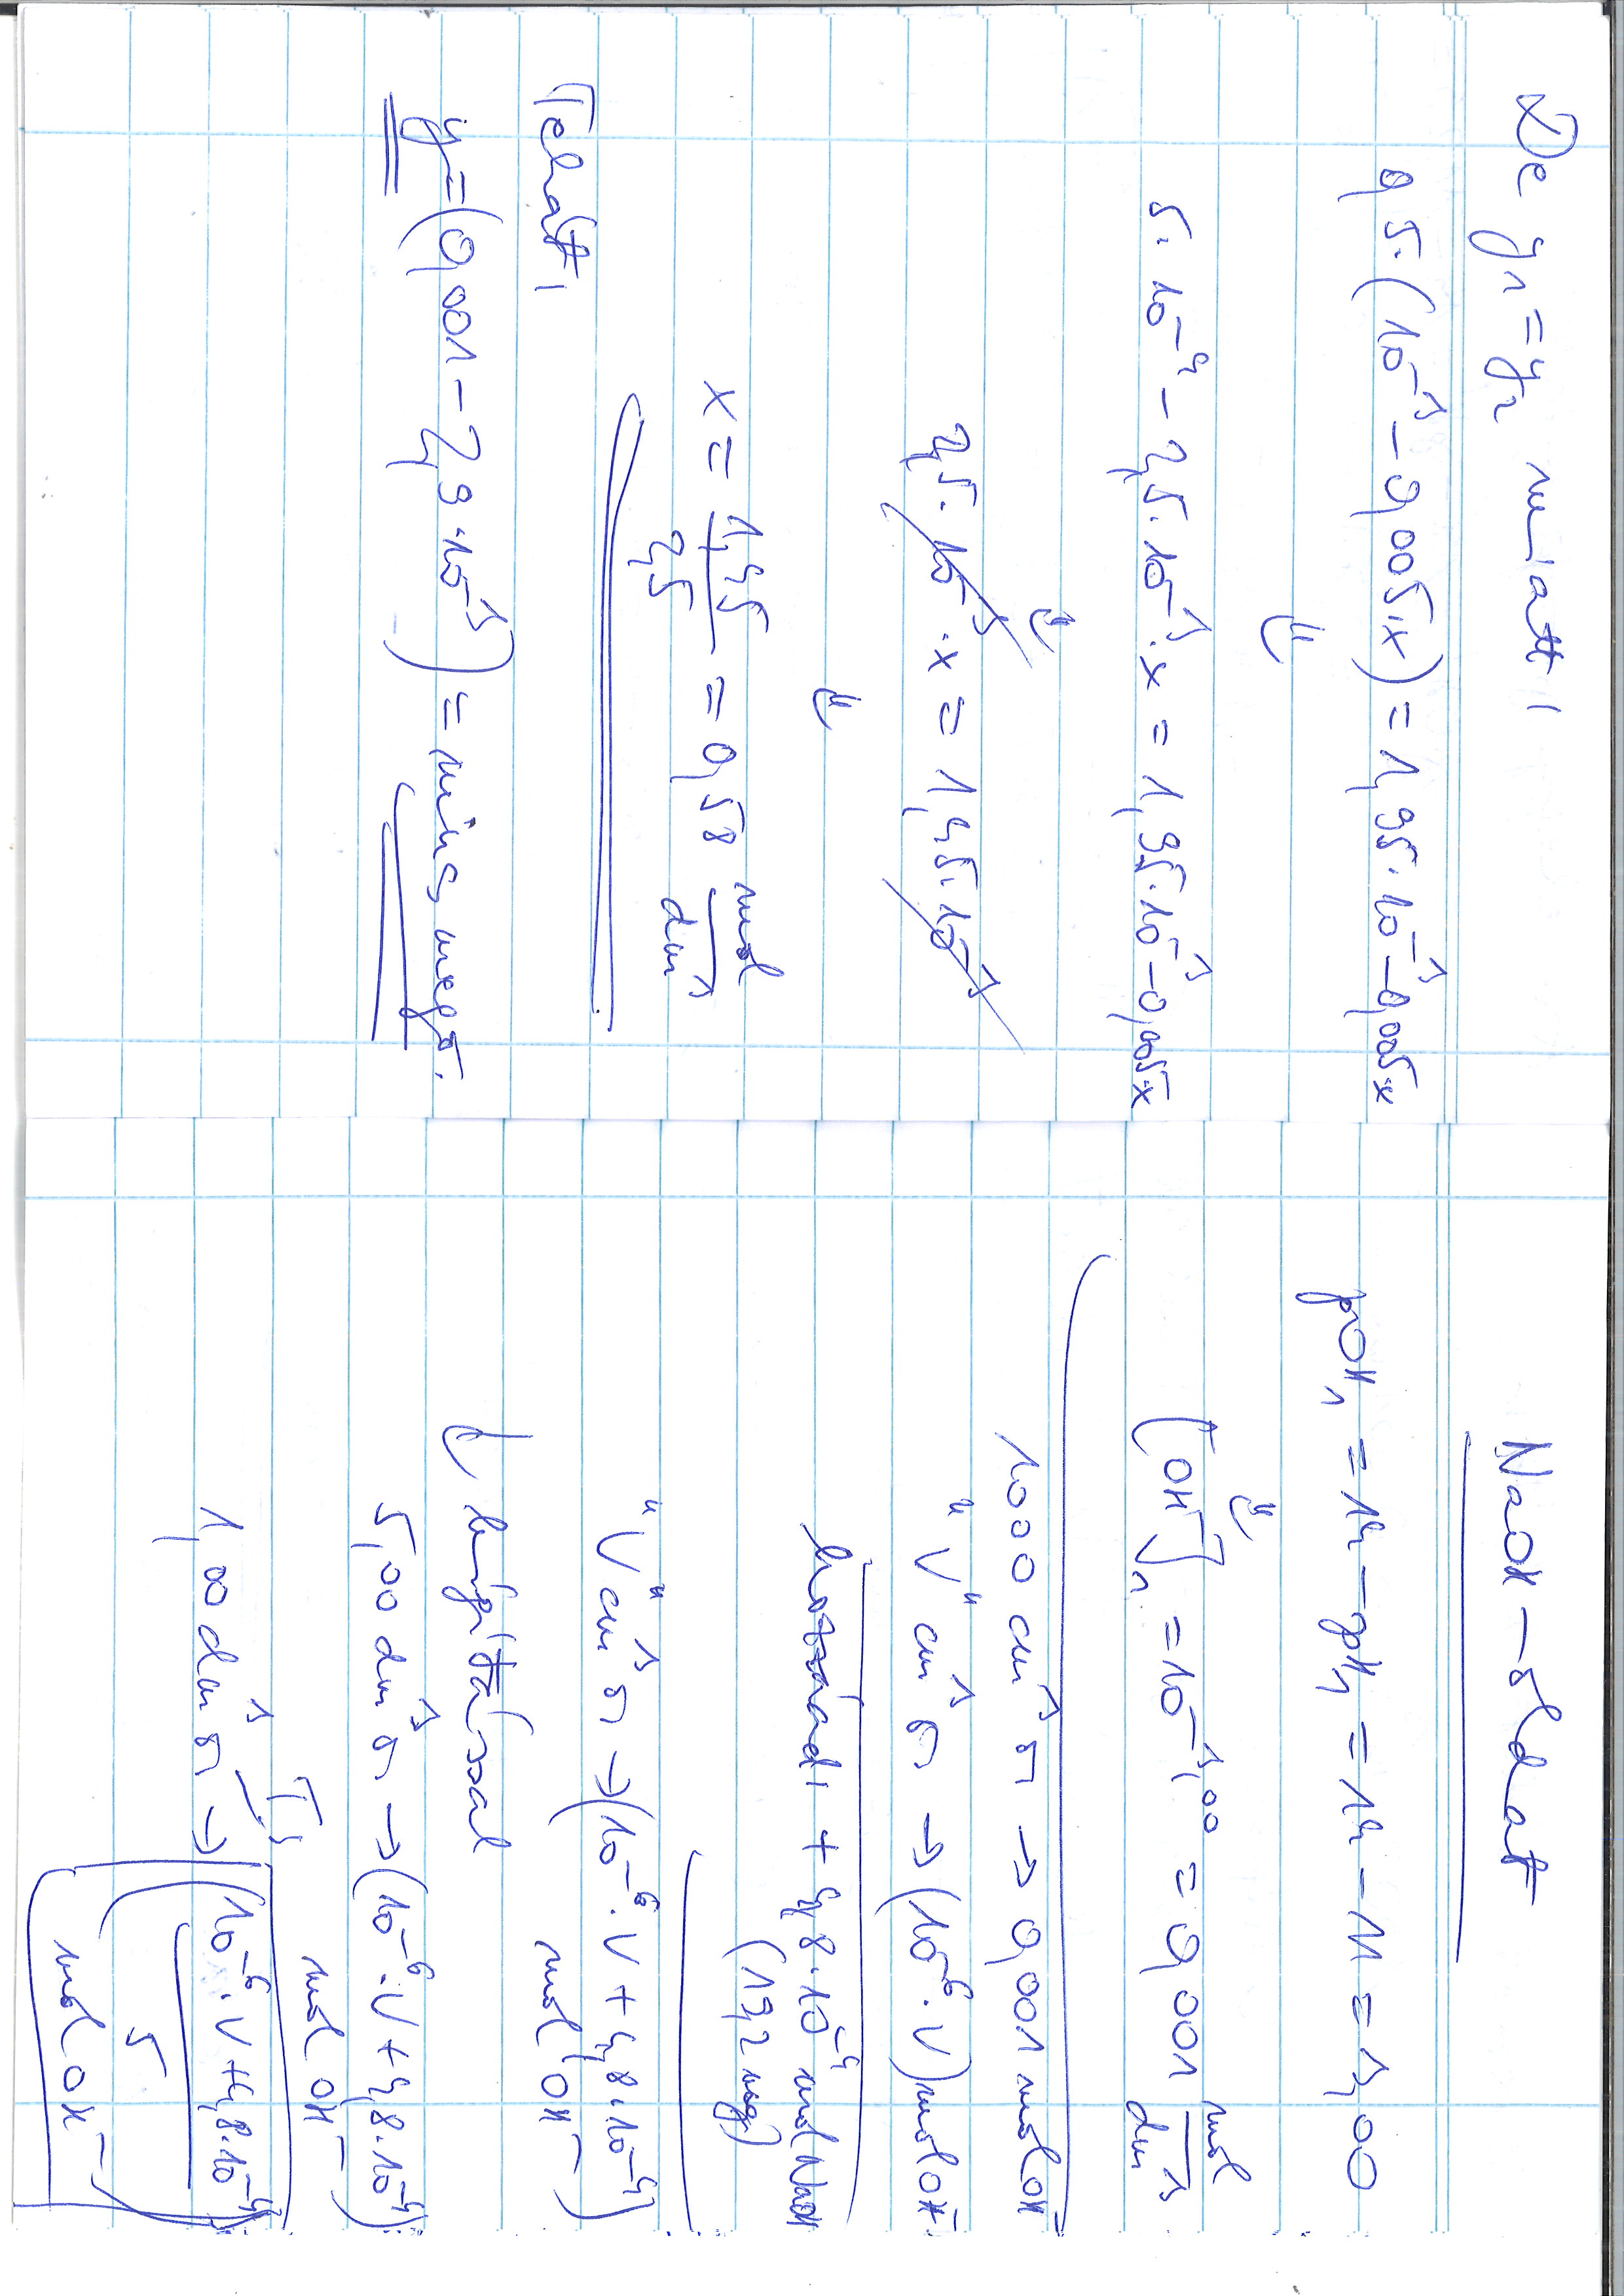 De y₁ = y₂ miatt
0,5·(10⁻³ – 0,005·x) = 1,95·10⁻³ – 0,005x
⇓
5·10⁻⁴ – 2,5·10⁻³·x = 1,95·10⁻³ – 0,005x
⇓
2,5·10⁻³·x = 1,45·10⁻³
⇓
x = 1,45/2,5 = 0,58 mol/dm³
Tehát
y = (0,001 – 2,9·10⁻³) = nincs mego.
NaOH–oldat
pOH₁ = 14 – pH₁ = 14 – 11 = 3,00
⇓
[OH⁻]₁ = 10⁻³,⁰⁰ = 0,001 mol/dm³
1000 cm³ → 0,001 mol OH⁻
"V" cm³ → (10⁻⁶·V) mol OH⁻
hozzáad + 4,8·10⁻⁴ mol NaOH
(19,2 mg)
"V" cm³ → (10⁻⁶·V + 4,8·10⁻⁴)
mol OH⁻
↓ hígítással
5,00 dm³ → (10⁻⁶·V + 4,8·10⁻⁴)
mol OH⁻
1,00 dm³ → (10⁻⁶·V + 4,8·10⁻⁴)/5
mol OH⁻